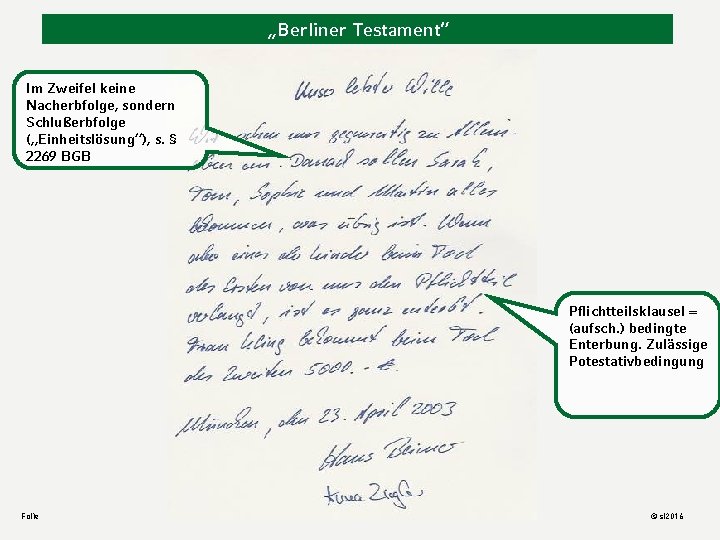 „Berliner Testament“
Im Zweifel keine
Nacherbfolge, sondern
Schlußerbfolge
(„Einheitslösung“), s. §
2269 BGB
Unser letzter Wille
Wir setzen uns gegenseitig zu Allein-
erben ein. Danach sollen Sarah,
Tom, Sophie und Martin alles
bekommen, was übrig ist. Wenn
aber eines der Kinder beim Tod
des Ersten von uns den Pflichtteil
verlangt, ist es ganz enterbt.
Frau Kling bekommt beim Tod
des Zweiten 5000.- €.
München, den 23. April 2003
Hans
Anna
Pflichtteilsklausel =
(aufsch.) bedingte
Enterbung. Zulässige
Potestativbedingung
Folie
© sl2016